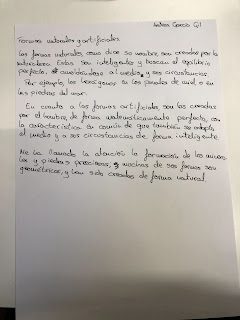 Andrea García Gil
Formas naturales y artificiales
Las formas naturales, como dice su nombre, son creadas por la
naturaleza. Estas son inteligentes y buscan el equilibrio
perfecto, amoldándose al medio y sus circunstancias.
Por ejemplo, los hexágonos en los panales de miel o en
las piedras del mar.
En cuanto a las formas artificiales son las creadas
por el hombre, de forma matemáticamente perfecta, con
la característica en común de que también se adapta
al medio y a sus circunstancias de forma inteligente.
Me ha llamado la atención la formación de los minera-
les y piedras preciosas, muchas de sus formas son
geométricas, y han sido creadas de forma natural.